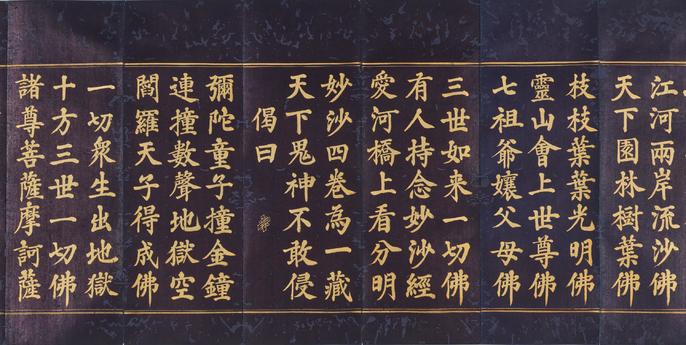 江河兩岸流沙佛
天下園林樹葉佛
枝枝葉葉光明佛
靈山會上世尊佛
七祖爺孃父母佛
三世如来一切佛
有人持念妙沙經
愛河橋上看分明
妙沙四卷為一藏
天下鬼神不敢侵
偈曰
彌陀童子撞金鐘
連撞數聲地獄空
閻羅天子得成佛
一切衆生出地獄
十方三世一切佛
諸尊菩薩摩訶薩